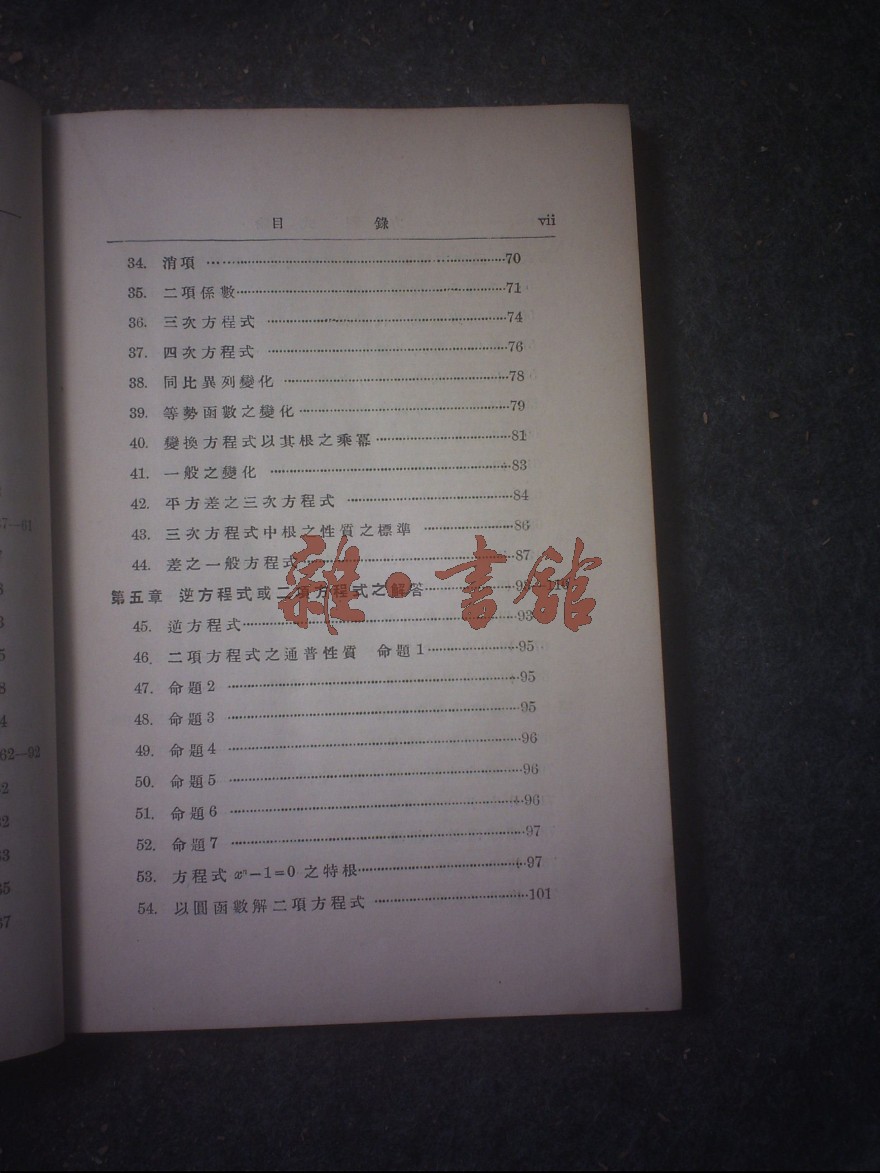 目 錄 vii
34. 消項 70
35. 二項係數 71
36. 三次方程式 74
37. 四次方程式 76
38. 同比異列變化 78
39. 等勢函數之變化 79
40. 變換方程式以其根之乘冪 81
41. 一般之變化 83
42. 平方差之三次方程式 84
43. 三次方程式中根之性質之標準 86
44. 差之一般方程式 87
第五章 逆方程式或二項方程式之解答 93
45. 逆方程式 93
46. 二項方程式之通普性質 命題1 95
47. 命題2 95
48. 命題3 95
49. 命題4 96
50. 命題5 96
51. 命題6 96
52. 命題7 97
53. 方程式 xⁿ−1=0 之特根 97
54. 以圓函數解二項方程式 101
雜·書館
57—61
62—92